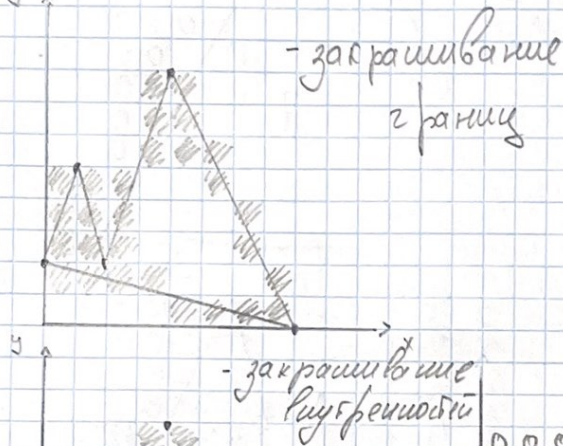 - закрашивание
границ
x
y
- закрашивание
внутренностей